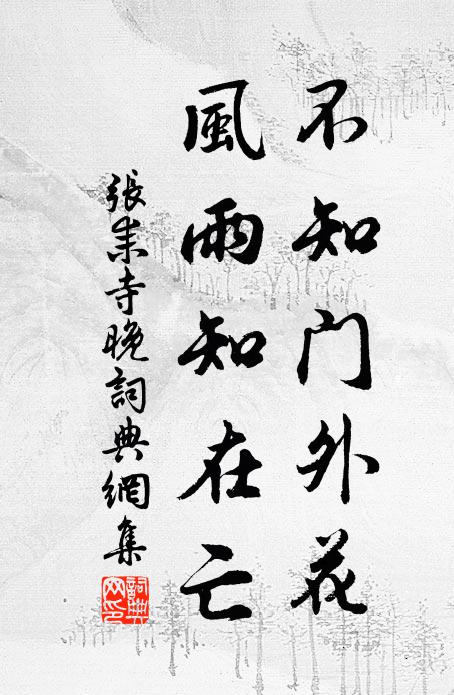 不知门外花
風雨知在亡
張耒寺晚詞典網集
詞典